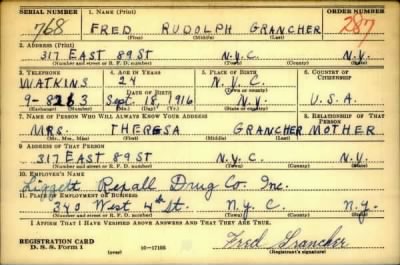 SERIAL NUMBER 1. NAME (Print) ORDER NUMBER
768 FRED RUDOLPH GRANCHER 287
(First) (Middle) (Last)
2. ADDRESS (Print)
317 EAST 89 ST N.Y.C. N.Y.
(Number and street or R. F. D. number) (Town) (County) (State)
3. TELEPHONE 4. AGE IN YEARS 5. PLACE OF BIRTH 6. COUNTRY OF CITIZENSHIP
WATKINS 24 N.Y.C.
(Town or county)
9-8263 Sept. 18, 1916 N.Y. U.S.A.
(Exchange) (Number) (Mo.) (Day) (Yr.) (State or country)
7. NAME OF PERSON WHO WILL ALWAYS KNOW YOUR ADDRESS 8. RELATIONSHIP OF THAT PERSON
MRS. THERESA GRANCHER MOTHER
(Mr., Mrs., Miss) (First) (Middle) (Last)
9. ADDRESS OF THAT PERSON
317 EAST 89 ST N.Y.C. N.Y.
(Number and street or R. F. D. number) (Town) (County) (State)
10. EMPLOYER'S NAME
Liggett Rexall Drug Co. Inc.
11. PLACE OF EMPLOYMENT OR BUSINESS
340 West 4th St. N.Y.C. N.Y.
(Number and street or R. F. D. number) (Town) (County) (State)
I AFFIRM THAT I HAVE VERIFIED ABOVE ANSWERS AND THAT THEY ARE TRUE.
REGISTRATION CARD
D. S. S. Form 1 (over) 16—17105 Fred Grancher
(Registrant's signature)